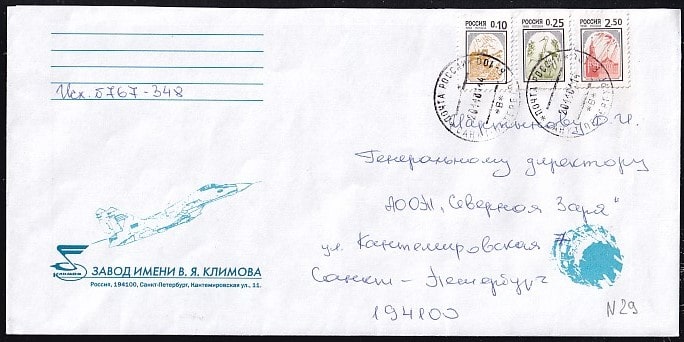 РОССИЯ 0.10
РОССИЯ 0.25
РОССИЯ 2.50
Исх. 5767-348
ПОЧТА РОССИИ
Мартынову
Генеральному директору
"Северная Заря"
ул. Кантемировская 7
Санкт-Петербург
194100
Климов
ЗАВОД ИМЕНИ В. Я. КЛИМОВА
Россия, 194100, Санкт-Петербург, Кантемировская ул., 11.
N29